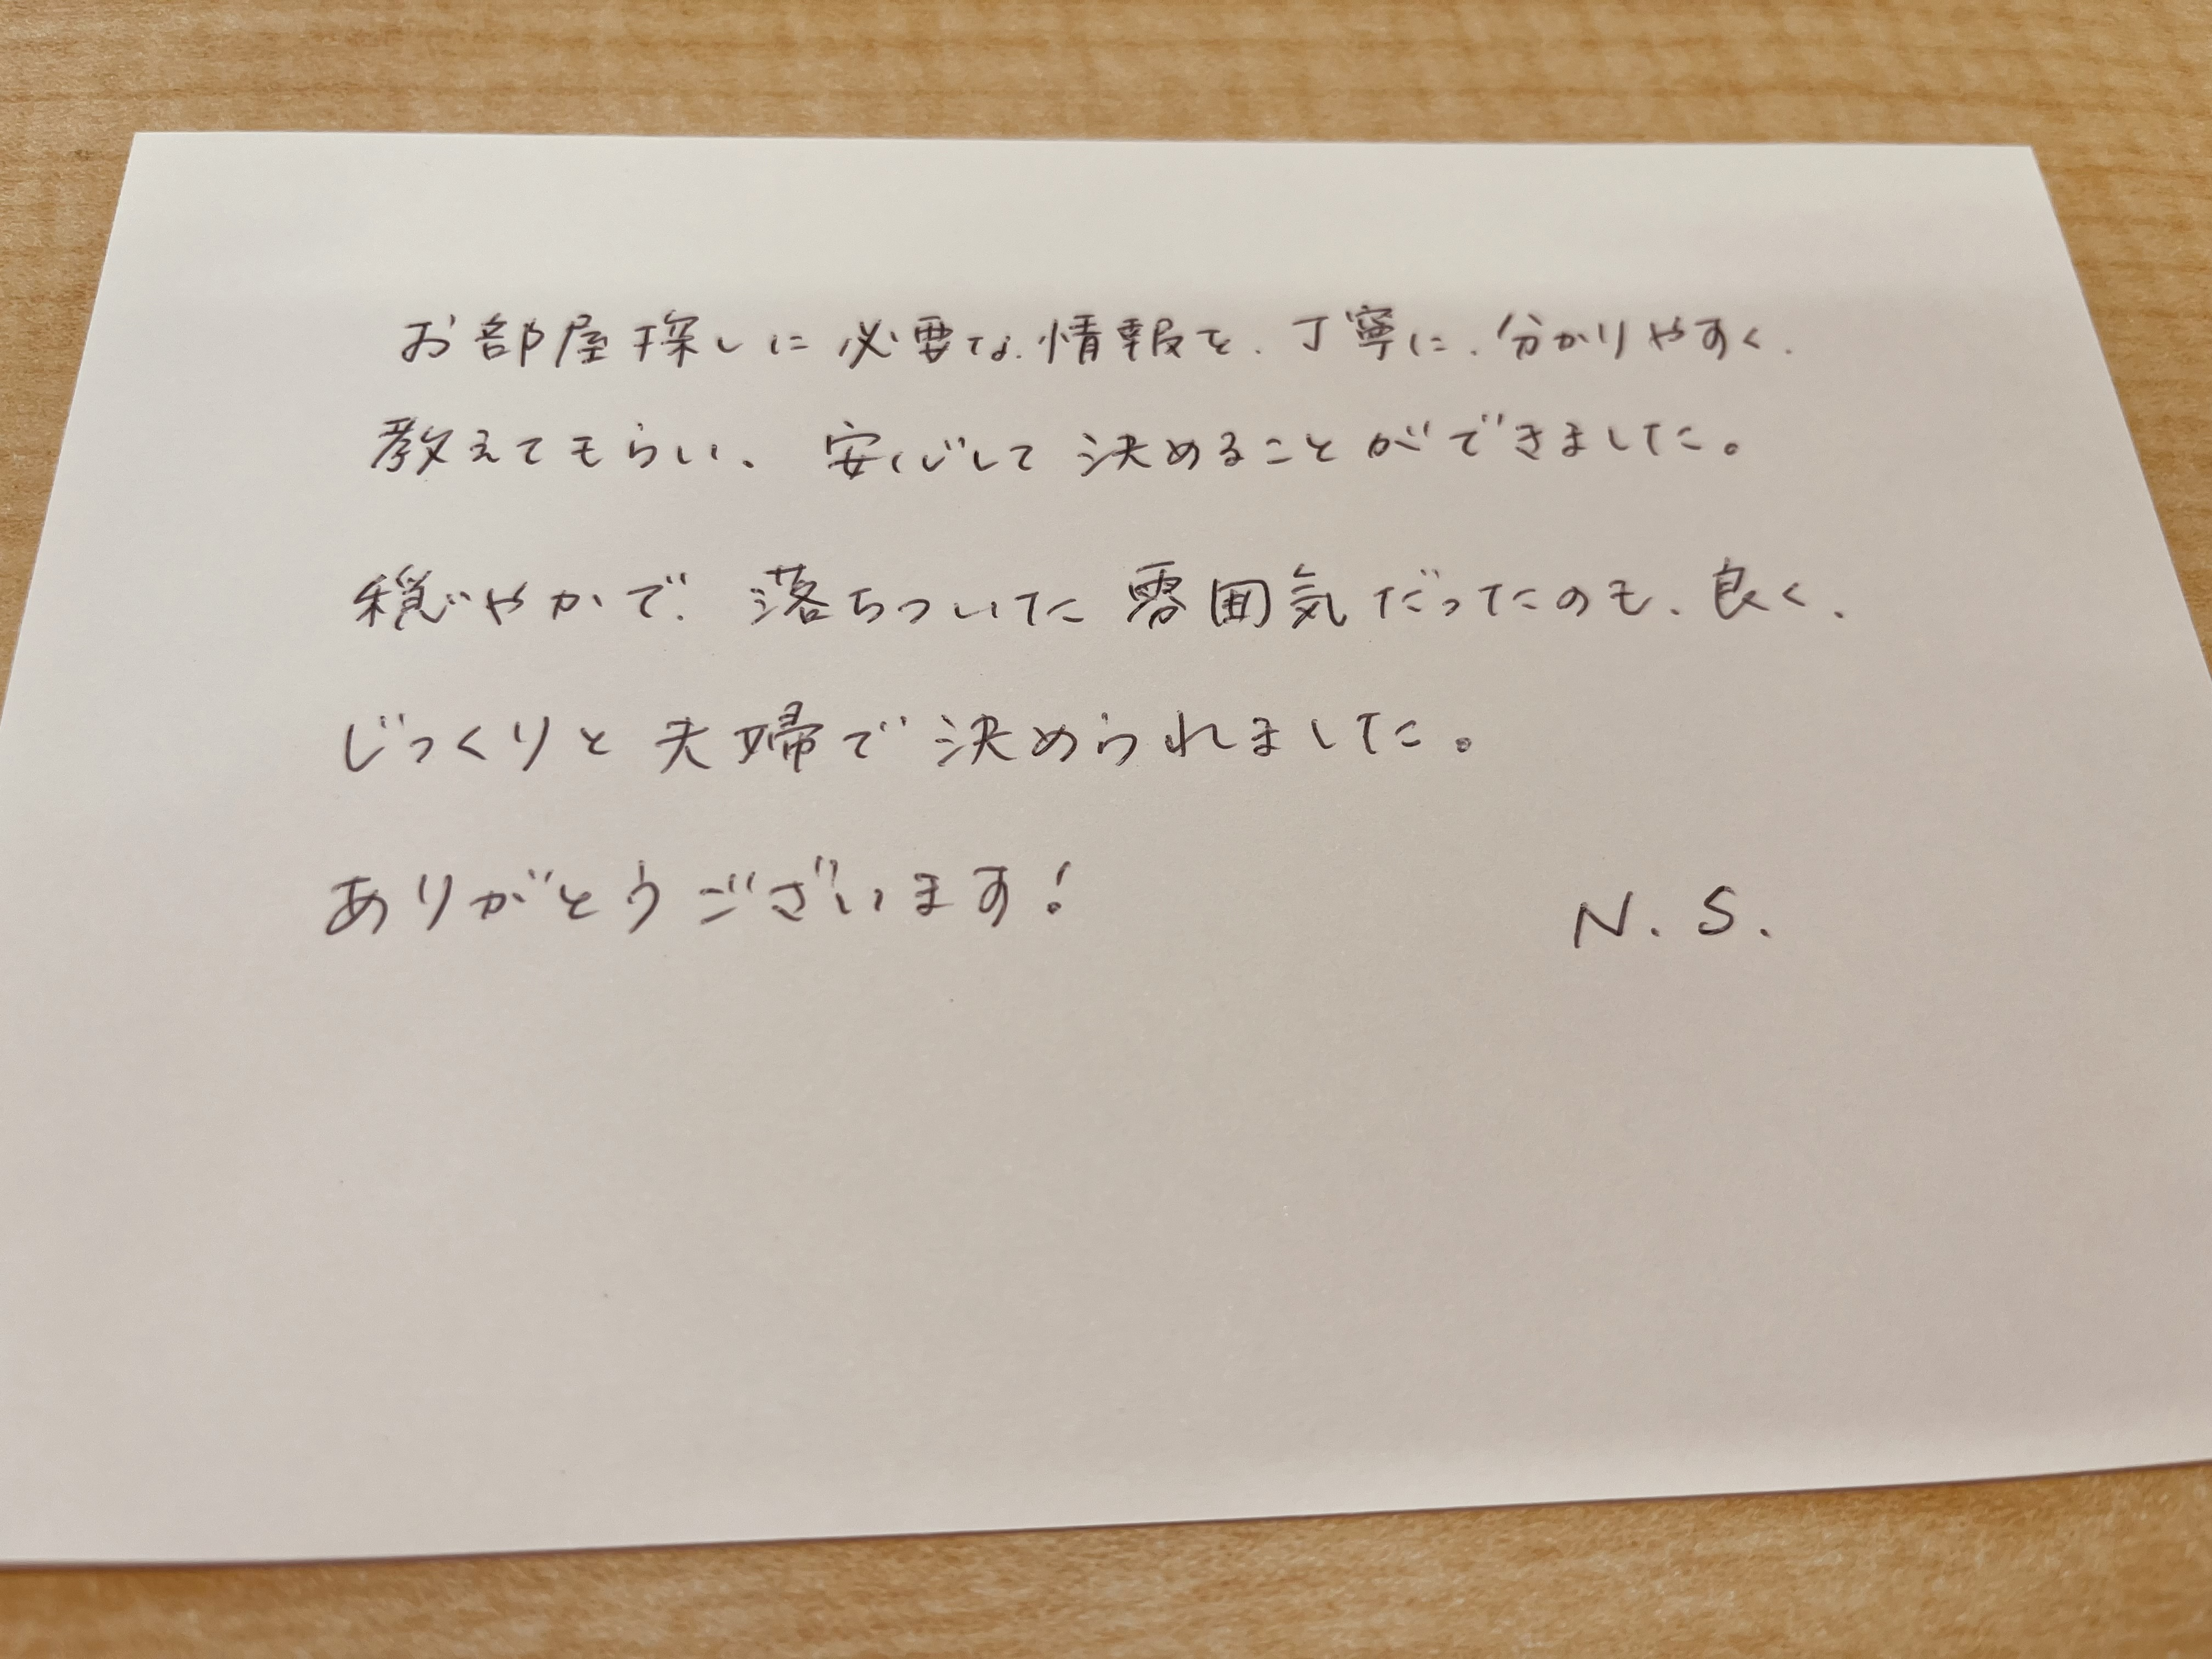 お部屋探しに必要な情報を、丁寧に、分かりやすく、
教えてもらい、安心して決めることができました。
穏やかで、落ちついた雰囲気だったのも、良く、
じっくりと夫婦で決められました。
ありがとうございます! N.S.